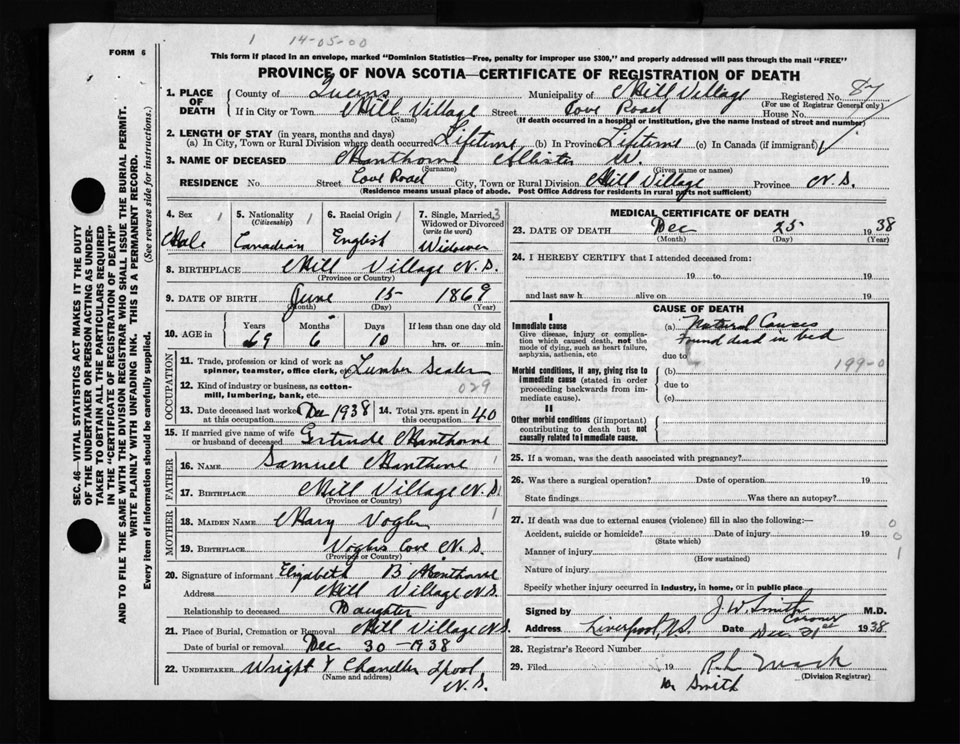 1 14-05-00
FORM 6
This form if placed in an envelope, marked "Dominion Statistics—Free, penalty for improper use $300," and properly addressed will pass through the mail "FREE"
PROVINCE OF NOVA SCOTIA—CERTIFICATE OF REGISTRATION OF DEATH
1. PLACE OF DEATH County of Queens Municipality of Mill Village Registered No. 87
(For use of Registrar General only)
If in City or Town Mill Village Street Cove Road House No.
(Name) (If death occurred in a hospital or institution, give the name instead of street and number)
2. LENGTH OF STAY (in years, months and days)
(a) In City, Town or Rural Division where death occurred Lifetime (b) In Province Lifetime (c) In Canada (if immigrant)
3. NAME OF DECEASED Manthorne Allister W.
(Surname) (Given name or names)
RESIDENCE No. Street Cove Road City, Town or Rural Division Mill Village Province N.S.
(Residence means usual place of abode. Post Office Address for residents in rural parts not sufficient)
4. Sex 1 5. Nationality 1 6. Racial Origin 1 7. Single, Married, 3
(Citizenship) Widowed or Divorced
(write the word)
Male Canadian English Widower
8. BIRTHPLACE Mill Village N.S.
(Province or Country)
9. DATE OF BIRTH June 15 1869
(Month) (Day) (Year)
10. AGE in Years Months Days If less than one day old
69 6 10 hrs. or min.
OCCUPATION
11. Trade, profession or kind of work as
spinner, teamster, office clerk, etc. Lumber Sealer
12. Kind of industry or business, as cotton-
mill, lumbering, bank, etc. 029
13. Date deceased last worked at this occupation Dec 1938 14. Total yrs. spent in this occupation 40
15. If married give name of wife
or husband of deceased Gertrude Manthorne
FATHER
16. NAME Samuel Manthorne 1
17. BIRTHPLACE Mill Village N.S.
(Province or Country)
MOTHER
18. MAIDEN NAME Mary Vogler 1
19. BIRTHPLACE Voglers Cove N.S.
(Province or Country)
20. Signature of informant Elizabeth B Manthorne
Address Mill Village N.S.
Relationship to deceased Daughter
21. Place of Burial, Cremation or Removal Mill Village N.S.
Date of burial or removal Dec 30-1938
22. UNDERTAKER Wright & Chandler L'pool
(Name and address) N.S.
MEDICAL CERTIFICATE OF DEATH
23. DATE OF DEATH Dec 25 1938
(Month) (Day) (Year)
24. I HEREBY CERTIFY that I attended deceased from:
19 to 19
and last saw h alive on 19
CAUSE OF DEATH
I
Immediate cause (a) Natural Causes
Give disease, injury or complica-
tion which caused death, not the
mode of dying, such as heart failure,
asphyxia, asthenia, etc
Found dead in bed
due to
Morbid conditions, if any, giving rise to
immediate cause (stated in order
proceeding backwards from im-
mediate cause).
(b) 199-0
due to
(c)
II
Other morbid conditions (if important)
contributing to death but not
causally related to immediate cause.
25. If a woman, was the death associated with pregnancy?
26. Was there a surgical operation? Date of operation 19
State findings Was there an autopsy?
27. If death was due to external causes (violence) fill in also the following:—
Accident, suicide or homicide? Date of injury 19
(State which)
Manner of injury
(How sustained)
Nature of injury
Specify whether injury occurred in industry, in home, or in public place
0
0
1
Signed by J. W. Smith M.D.
Coroner
Address Liverpool, N.S. Date Dec 31st 1938
28. Registrar's Record Number
29. Filed 19
(Division Registrar)
Dr Smith
SEC. 46—VITAL STATISTICS ACT MAKES IT THE DUTY
OF THE UNDERTAKER OR PERSON ACTING AS UNDER-
TAKER TO OBTAIN ALL THE PARTICULARS REQUIRED
IN THE "CERTIFICATE OF REGISTRATION OF DEATH"
AND TO FILE THE SAME WITH THE DIVISION REGISTRAR WHO SHALL ISSUE THE BURIAL PERMIT.
WRITE PLAINLY WITH UNFADING INK. THIS IS A PERMANENT RECORD.
Every item of information should be carefully supplied. (See reverse side for instructions.)